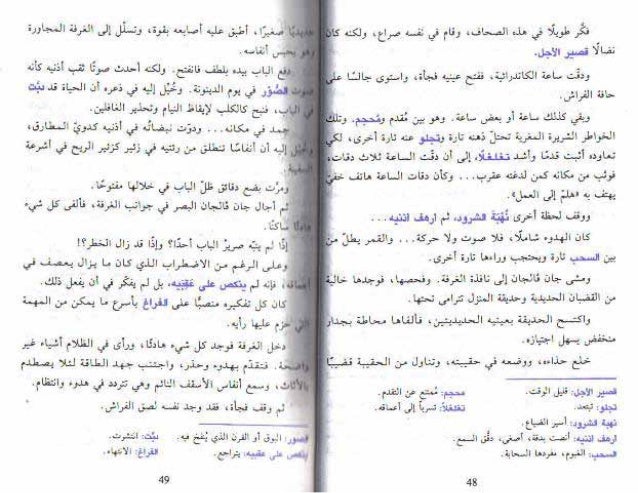 فكّر طويلًا في هذه الصحاف، وقام في نفسه صراع، ولكنه كان
نضالًا قصير الأجل.
ودقّت ساعة الكاتدرائية، ففتح عينيه فجأة، واستوى جالسًا على
حافة الفراش.
وبقي كذلك ساعة أو بعض ساعة. وهو بين مُقدم ومُحجم. وتلك
الخواطر الشريرة المغرية تحتلّ ذهنه تارة وتجلو عنه تارة أخرى، لكي
تعاوده أثبت قدمًا وأشد تغلغلًا، إلى أن دقّت الساعة ثلاث دقات،
فوثب من مكانه كمن لدغته عقرب... وكأن دقات الساعة هاتف خفي
يهتف به «هلمّ إلى العمل».
ووقف لحظة أخرى نُهْبَة الشرود، ثم ارهف اذنيه...
كان الهدوء شاملًا، فلا صوت ولا حركة... والقمر يطلّ من
بين السحب تارة ويحتجب وراءها تارة أخرى.
ومشى جان ڤالجان إلى نافذة الغرفة. وفحصها، فوجدها خالية
من القضبان الحديدية وحديقة المنزل تترامى تحتها.
واكتسح الحديقة بعينيه الحديديتين، فألفاها محاطة بجدار
منخفض يسهل اجتيازه.
خلع حذاءه، ووضعه في حقيبته، وتناول من الحقيبة قضيبًا
قصير الأجل: قليل الوقت. محجم: مُمتنع عن التقدم.
تجلو: تبتعد. تغلغلًا: تسربًا إلى أعماقه.
نهبة الشرود: أسير الضياع.
ارهف اذنيه: أنصت بدقة، أصغى، دقّق السمع.
السحب: الغيوم، مفردها السحابة.
48
حديديًا صغيرًا، أطبق عليه أصابعه بقوة، وتسلّل إلى الغرفة المجاورة
وهو يحبس أنفاسه.
دفع الباب بيده بلطف فانفتح. ولكنه أحدث صوتًا ثقب أذنيه كأنه
صوت الصُّوَر في يوم الدينونة. وخُيّل إليه في ذعره أن الحياة قد دبّت
في الباب، فنبح كالكلب لإيقاظ النيام وتحذير الغافلين.
جمد في مكانه... ودوّت نبضاتُه في أذنيه كدويّ المطارق،
وخُيّل إليه أن أنفاسًا تنطلق من رئتيه في زئير كزئير الريح في أشرعة
السفينة.
ومرّت بضع دقائق ظلّ الباب في خلالها مفتوحًا.
ثم أجال جان ڤالجان البصر في جوانب الغرفة، فألفى كل شيء
هادئًا ساكنًا.
إذًا لم ينبّه صريرُ الباب أحدًا؟ وإذًا قد زال الخطر؟!
وعلى الرغم من الاضطراب الذي كان ما يزال يعصف في
أعماقه، فإنه لم ينكص على عَقِبَيه، بل لم يفكّر في أن يفعل ذلك.
كان كل تفكيره منصبًّا على الفراغ بأسرع ما يمكن من المهمة
التي حزم عليها رأيه.
دخل الغرفة فوجد كل شيء هادئًا، ورأى في الظلام أشياء غير
واضحة. فتقدّم بهدوء وحذر، واجتنب جهد الطاقة لئلا يصطدم
بالأثاث، وسمع أنفاس الأسقف النائم وهي تتردد في هدوء وانتظام.
ثم وقف فجأة، فقد وجد نفسه لصق الفراش.
الصُوَر: البوق أو القرن الذي يُنفخ فيه. دبّت: انتشرت.
ينكص على عقبيه: يتراجع. الفراغ: الانتهاء.
49